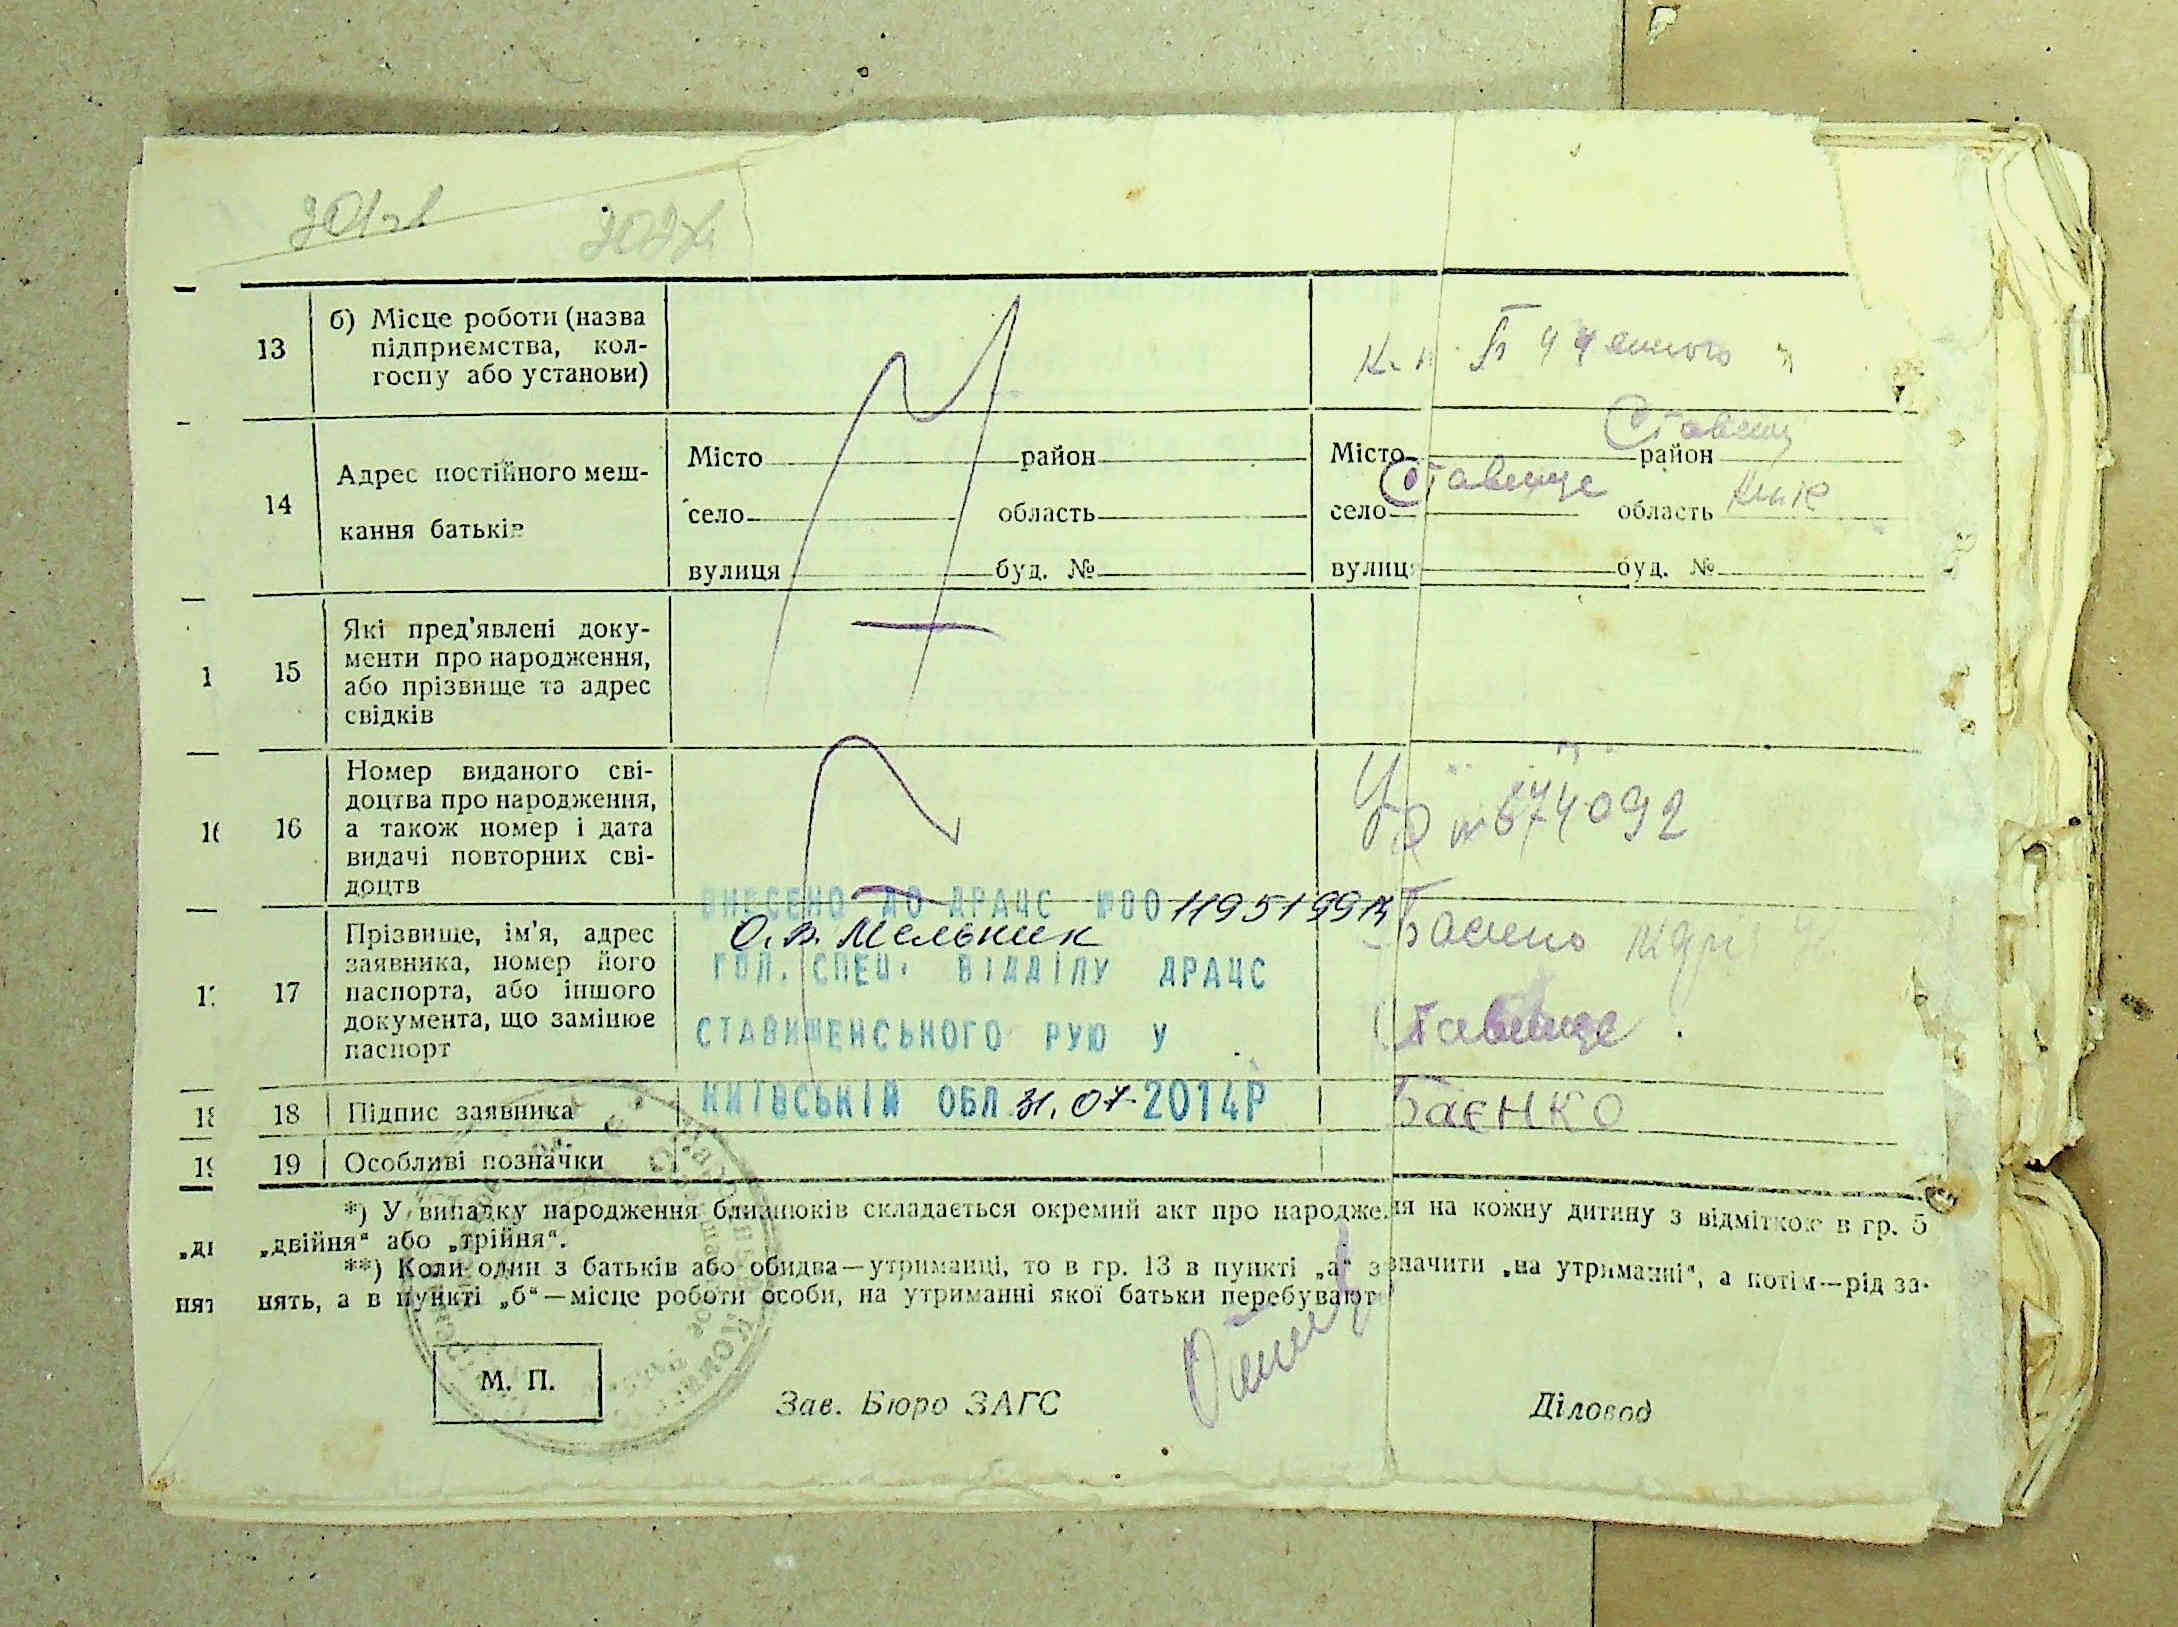 13
б) Місце роботи (назва
підприємства, кол-
госпу або установи)
14
Адрес постійного меш-
кання батьків
Місто район
село область
вулиця буд. №
Місто район Ставищ
село Ставище область Київ
вулиця буд. №
15
Які пред'явлені доку-
менти про народження,
або прізвище та адрес
свідків
16
Номер виданого сві-
доцтва про народження,
а також номер і дата
видачі повторних сві-
доцтв
№674092
17
Прізвище, ім'я, адрес
заявника, номер його
паспорта, або іншого
документа, що замінює
паспорт
ВНЕСЕНО ДО ДРАЦС №00119519913
О.В. Мельник
ГОЛ. СПЕЦ. ВІДДІЛУ ДРАЦС
СТАВИЩЕНСЬКОГО РУЮ У
КИЇВСЬКІЙ ОБЛ 31.07.2014Р
Баєнко
Ставище
18 Підпис заявника
Баєнко
19 Особливі позначки
*) У випадку народження близнюків складається окремий акт про народження на кожну дитину з відміткою в гр. 5
„двійня“ або „трійня“.
**) Коли один з батьків або обидва—утриманці, то в гр. 13 в пункті „а“ зазначити „на утриманні“, а потім—рід за-
нять, а в пункті „б“—місце роботи особи, на утриманні якої батьки перебувают
М. П.
Зав. Бюро ЗАГС
Діловод